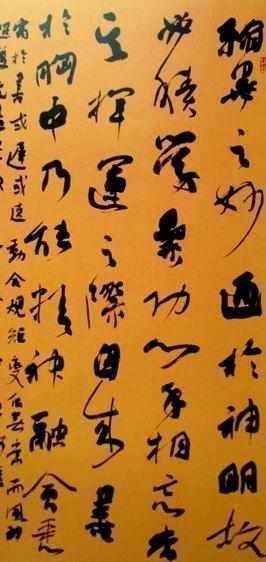 翰墨之妙通於神明故
必積學累功心手相忘當
其揮運之際自成書
於胸中乃能精神融會悉
寓於書或遲或速動合規矩變化無常而風神